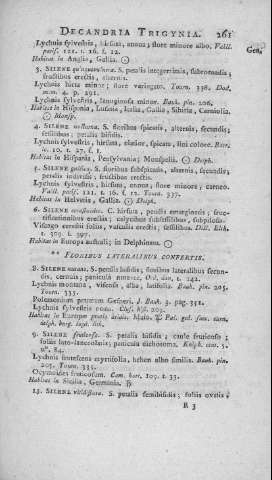 DECANDRIA TRIGYNIA. 261
Lychnis sylvestris, hirsuta, annua; flore minore albo. Vaill.
paris. 121. t. 16. f. 12.
Habitat in Anglia, Gallia. ☉
3. SILENE quinquevulnera. S. petalis integerrimis, subrotundis;
fructibus erectis, alternis.
Lychnis hirta minor; flore variegato. Tourn. 338. Dod.
mem. 4. p. 291.
Lychnis sylvestris, lanuginosa minor. Bauh. pin. 206.
Habitat in Hispania, Lusitania, Italia, Gallia, Sibiria, Carniolia.
☉ Monsp.
4. SILENE nocturna. S. floribus spicatis, alternis, secundis;
sessilibus; petalis bifidis.
Lychnis sylvestris, hirsuta, elatior, spicata, lini colore. Barr.
ic. 1027. f. 1.
Habitat in Hispania, Pensylvania; Monspelii. ☉ Delph.
5. SILENE gallica. S. floribus subspicatis, alternis, secundis;
petalis indivisis; fructibus erectis.
Lychnis sylvestris, hirsuta, annua, flore minore, carneo.
Vaill. paris. 121. t. 16. f. 12. Tourn. 337.
Habitat in Helvetia, Gallia. ☉ Delph.
6. SILENE cerastoides. C. hirsuta, petalis emarginatis, fruc-
tiferationibus erectis; calycibus subsessilibus, subpilosis.
Viscago cerastii foliis, vasculis erectis, sessilibus. Dill. Elth.
t. 309. f. 397.
Habitat in Europa australi; in Delphinatu. ☉
** FLORIBUS LATERALIBUS CONFERTIS.
8. SILENE nutans. S. petalis bifidis; floribus lateralibus secun-
dis, cernuis; panicula nutante. Oed. dan. t. 242.
Lychnis montana, viscosa, alba, latifolia. Bauh. pin. 205.
Tourn. 335.
Polemonium petraeum Gesneri. J. Bauh. 3. pag. 351.
Lychnis sylvestris nona. Clus. hist. 291.
Habitat in Europae pratis aridis. Maio. ♃ Pal. gal. sum. cam.
delph. burg. lugd. lith.
9. SILENE fruticosa. S. petalis bifidis; caule fruticoso;
foliis lato-lanceolatis; panicula dichotoma. Kniph. cent. 3.
n°. 84.
Lychnis frutescens myrtifolia, behen albo similis. Bauh. pin.
205. Tourn. 335.
Ocymoides fruticosum. Cam. hort. 109. t. 33.
Habitat in Sicilia, Germania. ♄
13. SILENE viridiflora. S. petalis semibifidis; foliis ovatis,
R 3
Gen.